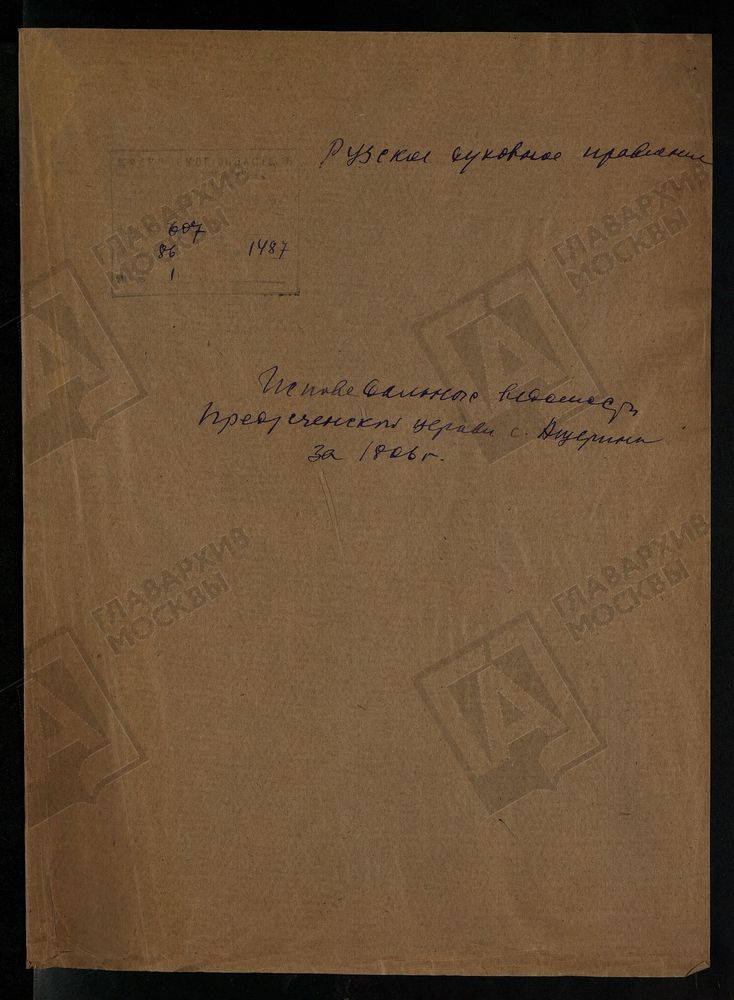 Рузское духовное правление
607
86 1487
1
Исповедальные ведомости
Предтеченской церкви с. Ащерина
за 1806 г.
ГЛАВАРХИВ
МОСКВЫ
ГЛАВАРХИВ
МОСКВЫ
ГЛАВАРХИВ
МОСКВЫ
ГЛАВАРХИВ
МОСКВЫ